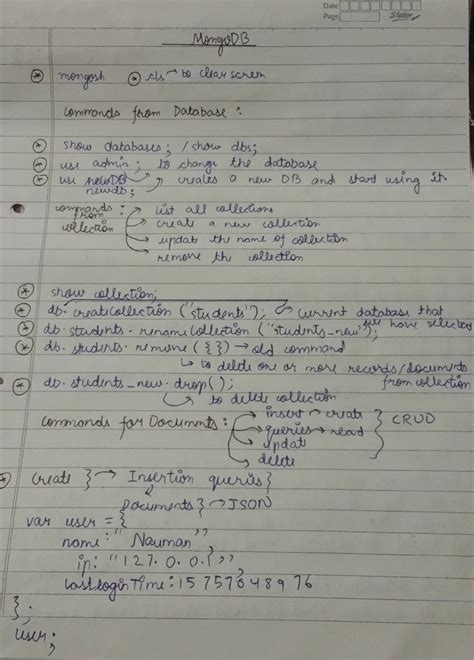 Date
Page
MongoDB
mongosh cls → to clear screen
Commands from Database :
show databases ; / show dbs;
use admin ; to change the database
use newDB → creates a new DB and start using it.
newdb;
commands from collection : → list all collections
→ create a new collection
→ update the name of collection
→ remove the collection
show collection;
db.createCollection ("students"); → current database that
we have selected
db.students.renameCollection ("students_new");
db.students.remove ({ }) → old command
→ to delete one or more records/documents
from collection
db.students_new.drop() ;
→ to delete collection.
Commands for Documents : → insert → create } CRUD
→ queries → read
→ update
→ delete
Create } → Insertion queries }
Documents } → JSON
var user = {
name: "Nauman",
ip: "127.0.0.1",
lastloginTime: 15757648976
};
user;